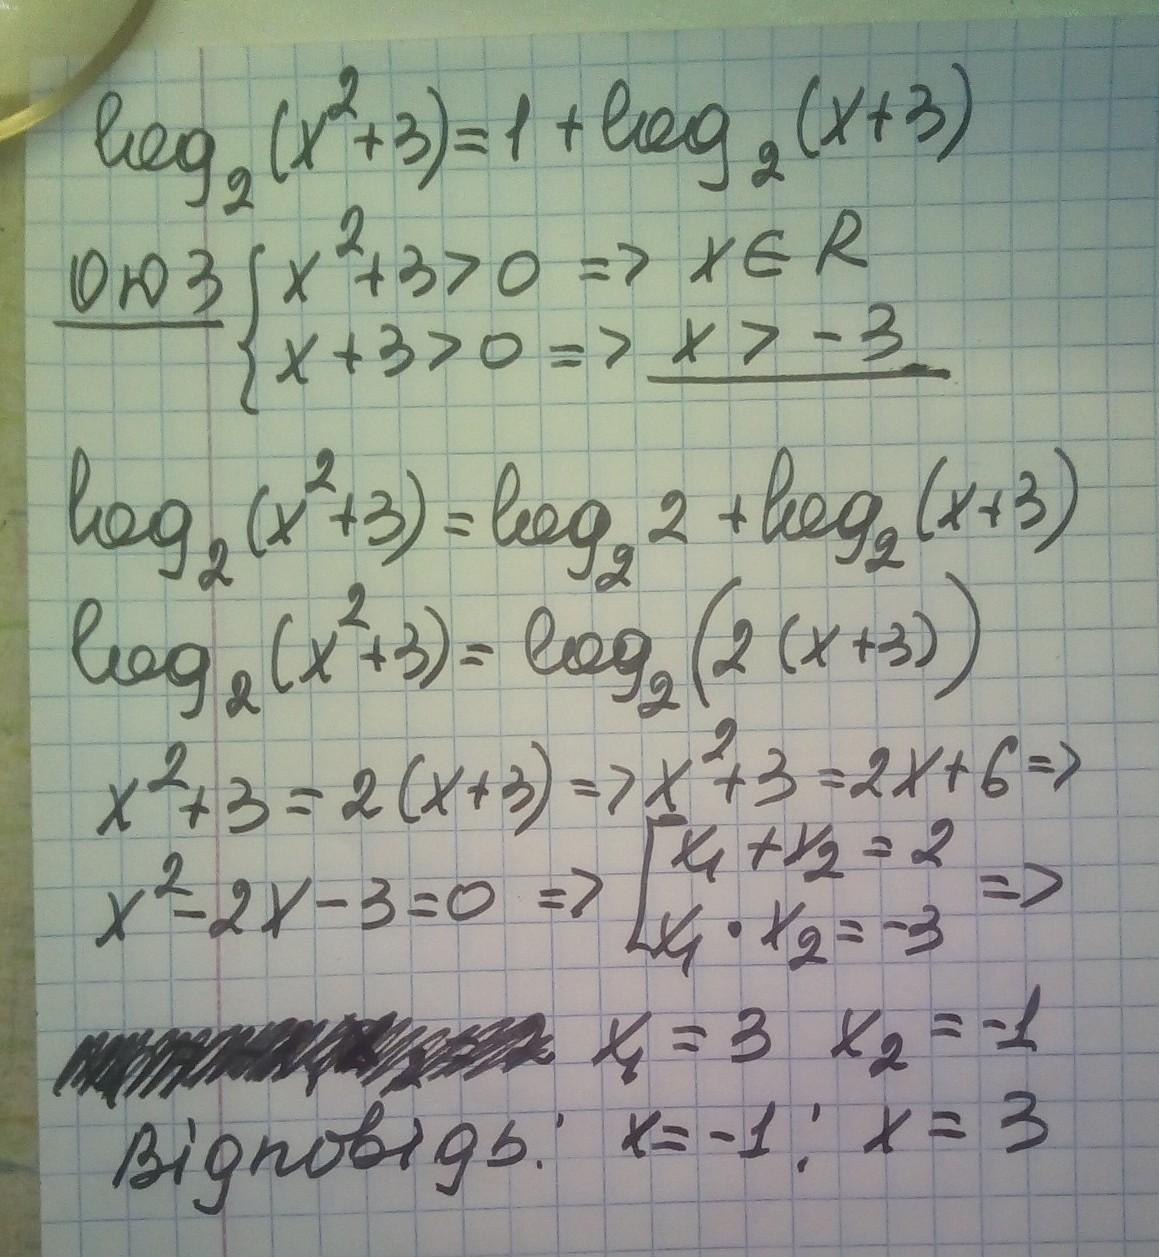 log₂(x²+3)=1+log₂(x+3)
ОДЗ { x²+3>0 => x∈R
x+3>0 => x>-3
log₂(x²+3)=log₂2+log₂(x+3)
log₂(x²+3)=log₂(2(x+3))
x²+3=2(x+3)=>x²+3=2x+6=>
x²-2x-3=0 => [ x₁+x₂=2
x₁·x₂=-3 =>
x₁=3 x₂=-1
Відповідь: x=-1; x=3